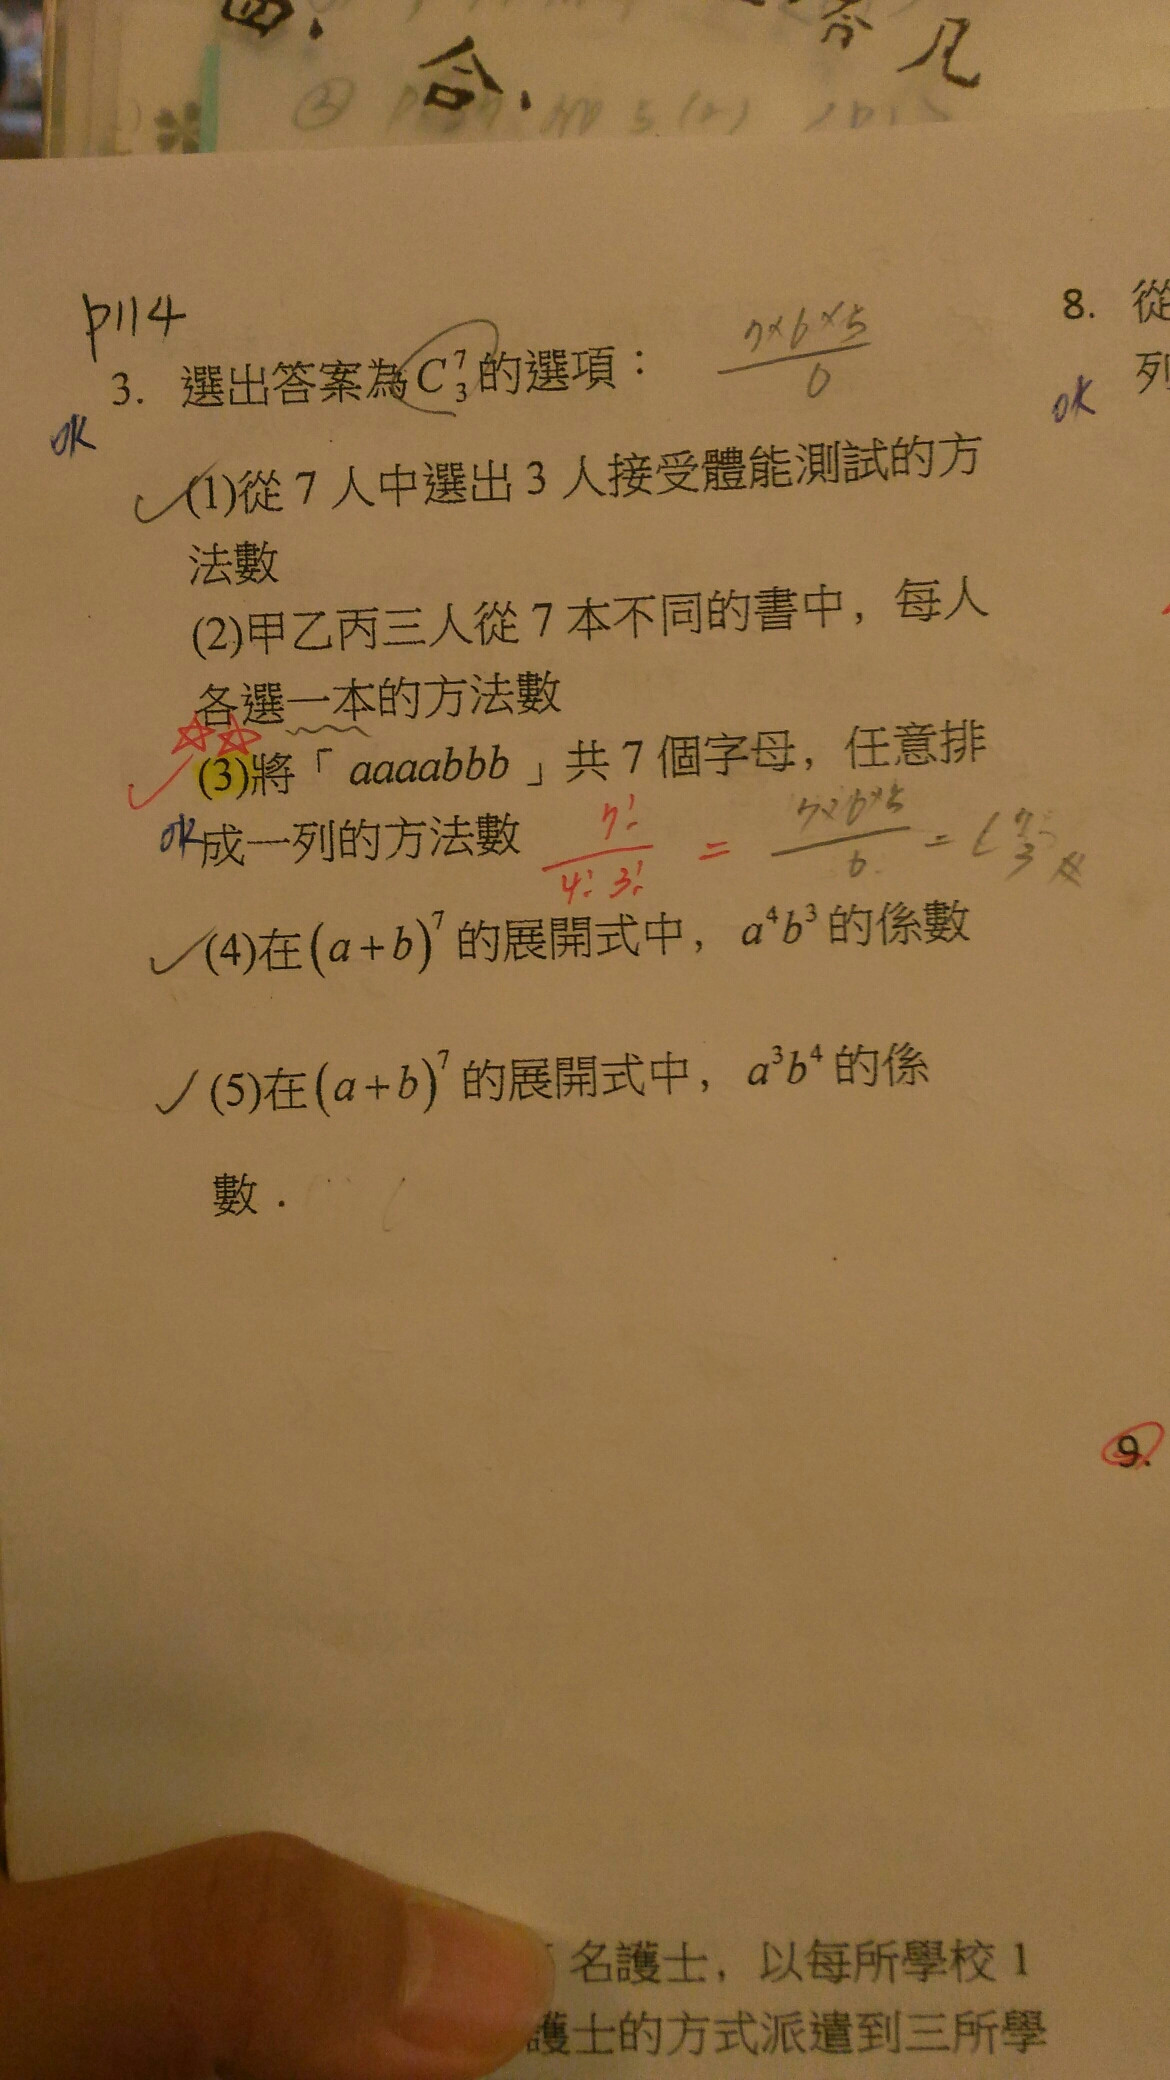 四.
合.
答 凡
p114
3. 選出答案為 C⁷₃ 的選項：
7×6×5
6
ok
(1)從 7 人中選出 3 人接受體能測試的方
法數
(2)甲乙丙三人從 7 本不同的書中，每人
各選一本的方法數
(3)將「 aaaabbb 」共 7 個字母，任意排
ok 成一列的方法數
7! / 4! 3! = 7×6×5 / 6 = C⁷₃
(4)在 (a+b)⁷ 的展開式中， a⁴b³ 的係數
(5)在 (a+b)⁷ 的展開式中， a³b⁴ 的係
數．
8. 從
列
ok
9.
名護士，以每所學校 1
護士的方式派遣到三所學